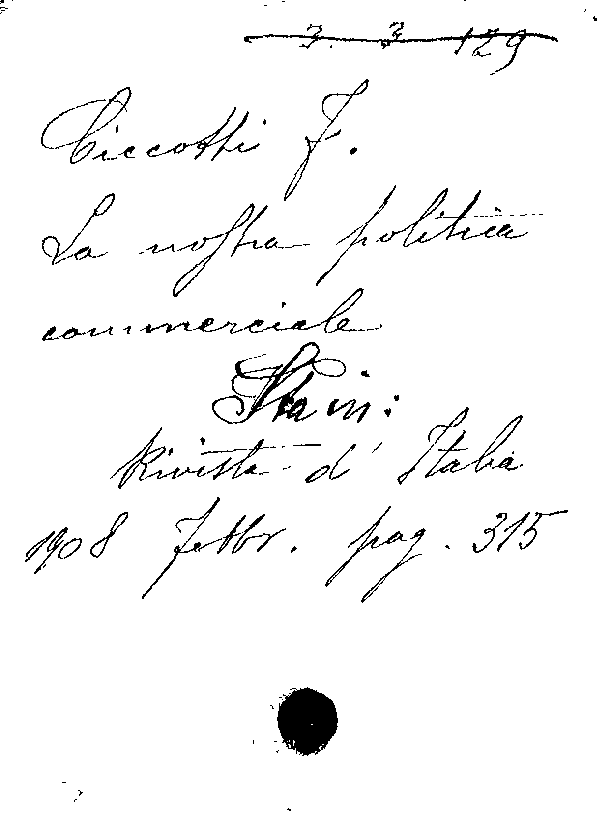 3. 3 129
Ciccotti F.
La nostra politica
commerciale
Sta in:
Rivista d'Italia
1908 febbr. pag. 315